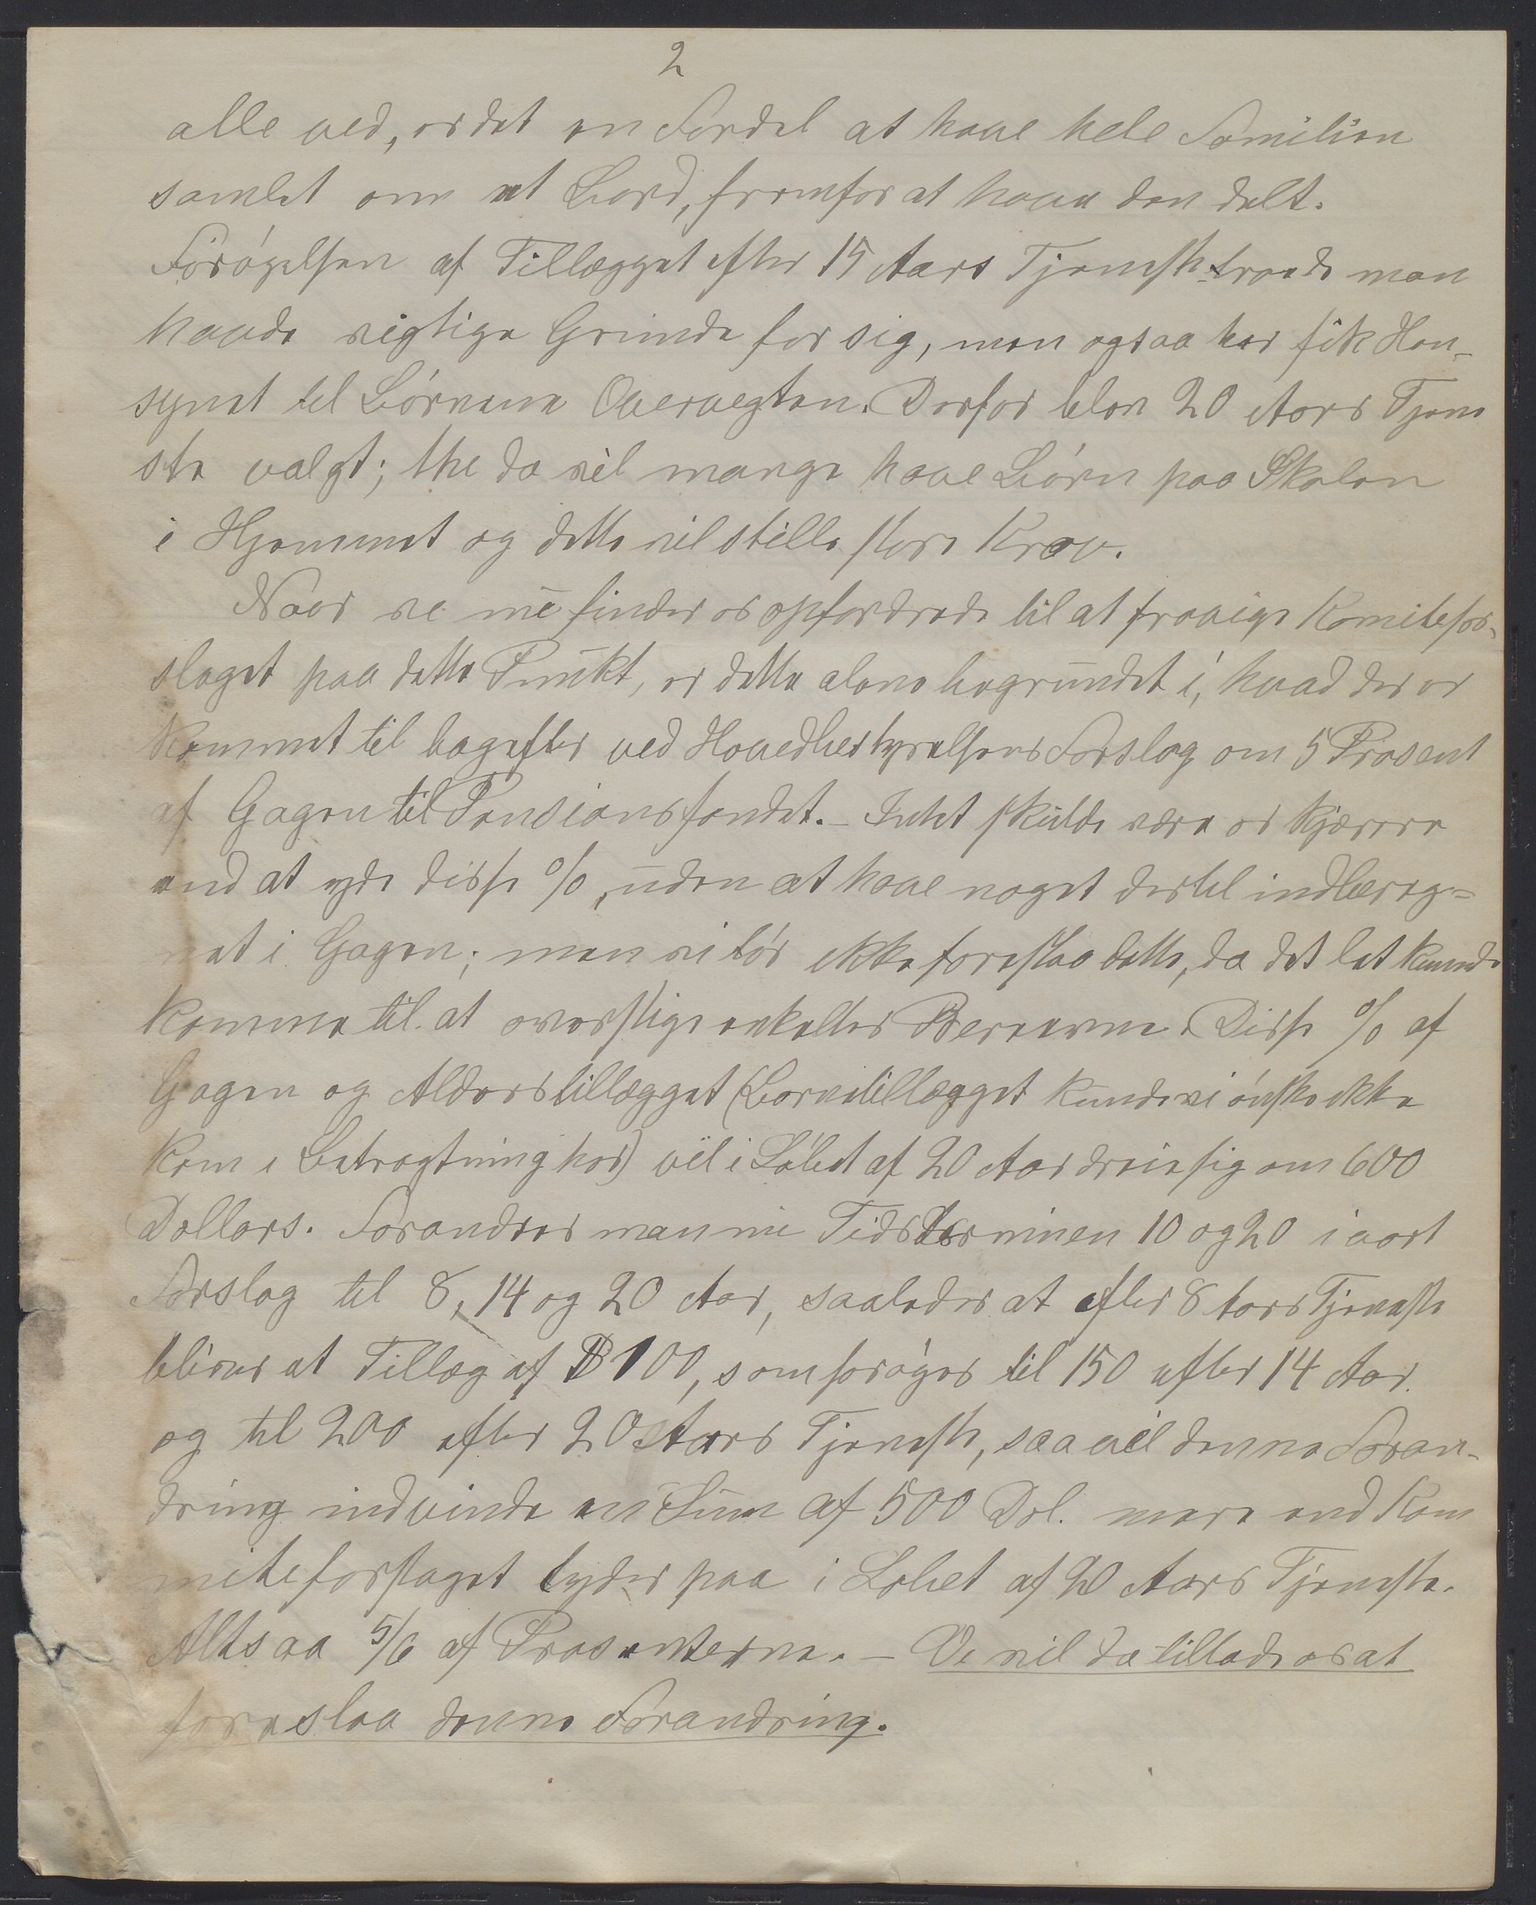 2
alle ved, er det en Fordel at have hele Familien
samlet om et Bord, fremfor at have den delt.
Forøgelsen af Tillægget efter 15 Aars Tjeneste troede man
havde vigtige Grunde for sig, men ogsaa her fik Hen-
synet til Børnene Overvegten. Derfor blev 20 Aars Tjene
ste valgt; thi da vil mange have Børn paa Skolen
i Hjemmet og dette vil stille store Krav.
Naar vi nu finder os opfordrede til at fravige Komitefor-
slaget paa dette Punkt, er dette alene begrundet i, hvad der er
kommet til bagefter ved Hovedbestyrelsens Forslag om 5 Prosent
af Gagen til Pensionsfondet. – Intet skulde være os kjærere
end at yde disse %, uden at have noget dertil indbereg-
net i Gagen; men vi tør ikke foreslaa dette, da det let kunde
komme til at overstige enkeltes Evne. Disse % af
Gagen og Alderstillægget (Børnetillægget kunde vi ønske ikke
kom i Betragtning her) vil i Løbet af 20 Aar dreie sig om 600
Dollars. Forandres man nu Tidsterminen 10 og 20 i vort
Forslag til 8, 14 og 20 Aar, saaledes at efter 8 Aars Tjeneste
bliver et Tillæg af $ 100, som forøges til 150 efter 14 Aar
og til 200 efter 20 Aars Tjeneste, saa vil denne Foran-
dring indvinde en Sum af 500 Dol. mere end Kom
miteforslaget lyder paa i Løbet af 20 Aars Tjeneste.
Altsaa 5/6 af Prosenterne. – Vi vil da tillade os at
foreslaa denne Forandring.